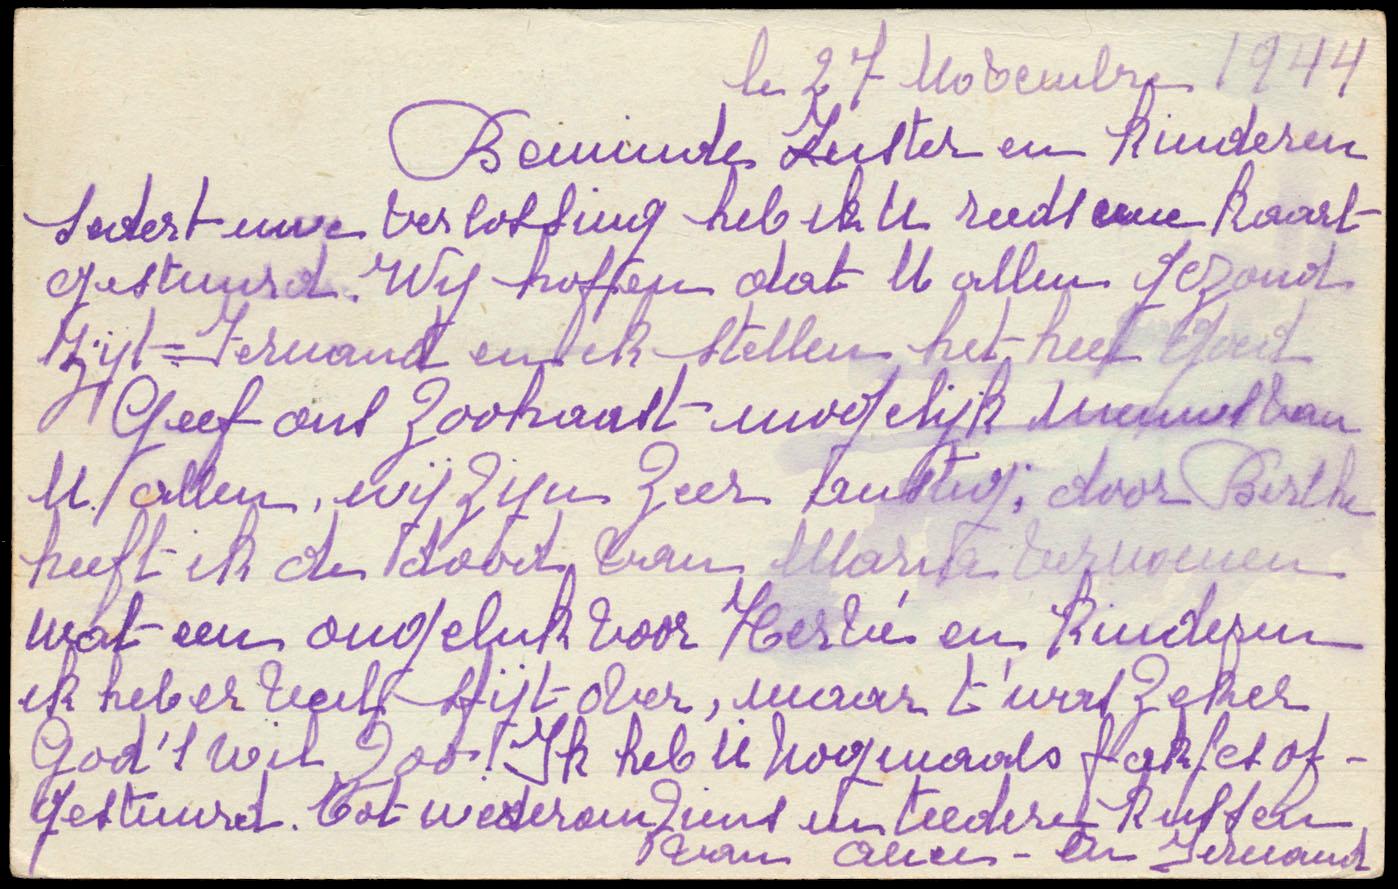 le 27 Novembre 1944
Beminde Zuster en Kinderen
sedert uwe verlossing heb ik U reeds eene kaart
gestuurd. Wij hoffen dat U allen gezond
zijt = Fernand en ik stellen het heel goed
Geef ons zoohaast mogelijk nieuws van
U allen, wij zijn zeer lustig; door Berthe
heeft ik de dood van Maria vernomen
wat een ongeluk voor Hervé en Kinderen
ik heb er veel spijt over, maar t'was zeker
God's wil zoo! Ik heb U nogmaals pakjes of-
gestuurd. Tot wederom ziens en teedere Kussen
van Alice - en Fernand